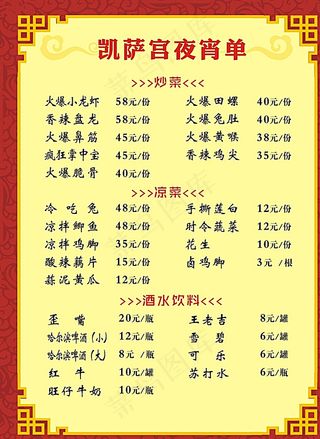 凯萨宫夜宵单
>>>炒菜<<<
火爆小龙虾 58元/份 火爆田螺 40元/份
香辣盘龙 58元/份 火爆兔肚 40元/份
火爆鼻筋 45元/份 火爆黄喉 38元/份
疯狂掌中宝 45元/份 香辣鸡尖 35元/份
火爆脆骨 40元/份
>>>凉菜<<<
冷吃兔 48元/份 手撕莲白 12元/份
凉拌鲫鱼 48元/份 时令蔬菜 12元/份
凉拌鸡脚 35元/份 花生 10元/份
酸辣藕片 15元/份 卤鸡脚 3元/根
蒜泥黄瓜 12元/份
>>>酒水饮料<<<
歪嘴 20元/瓶 王老吉 8元/罐
哈尔滨啤酒(小) 12元/瓶 雪碧 6元/罐
哈尔滨啤酒(大) 8元/瓶 可乐 6元/罐
红牛 10元/瓶 苏打水 6元/罐
旺仔牛奶 10元/瓶